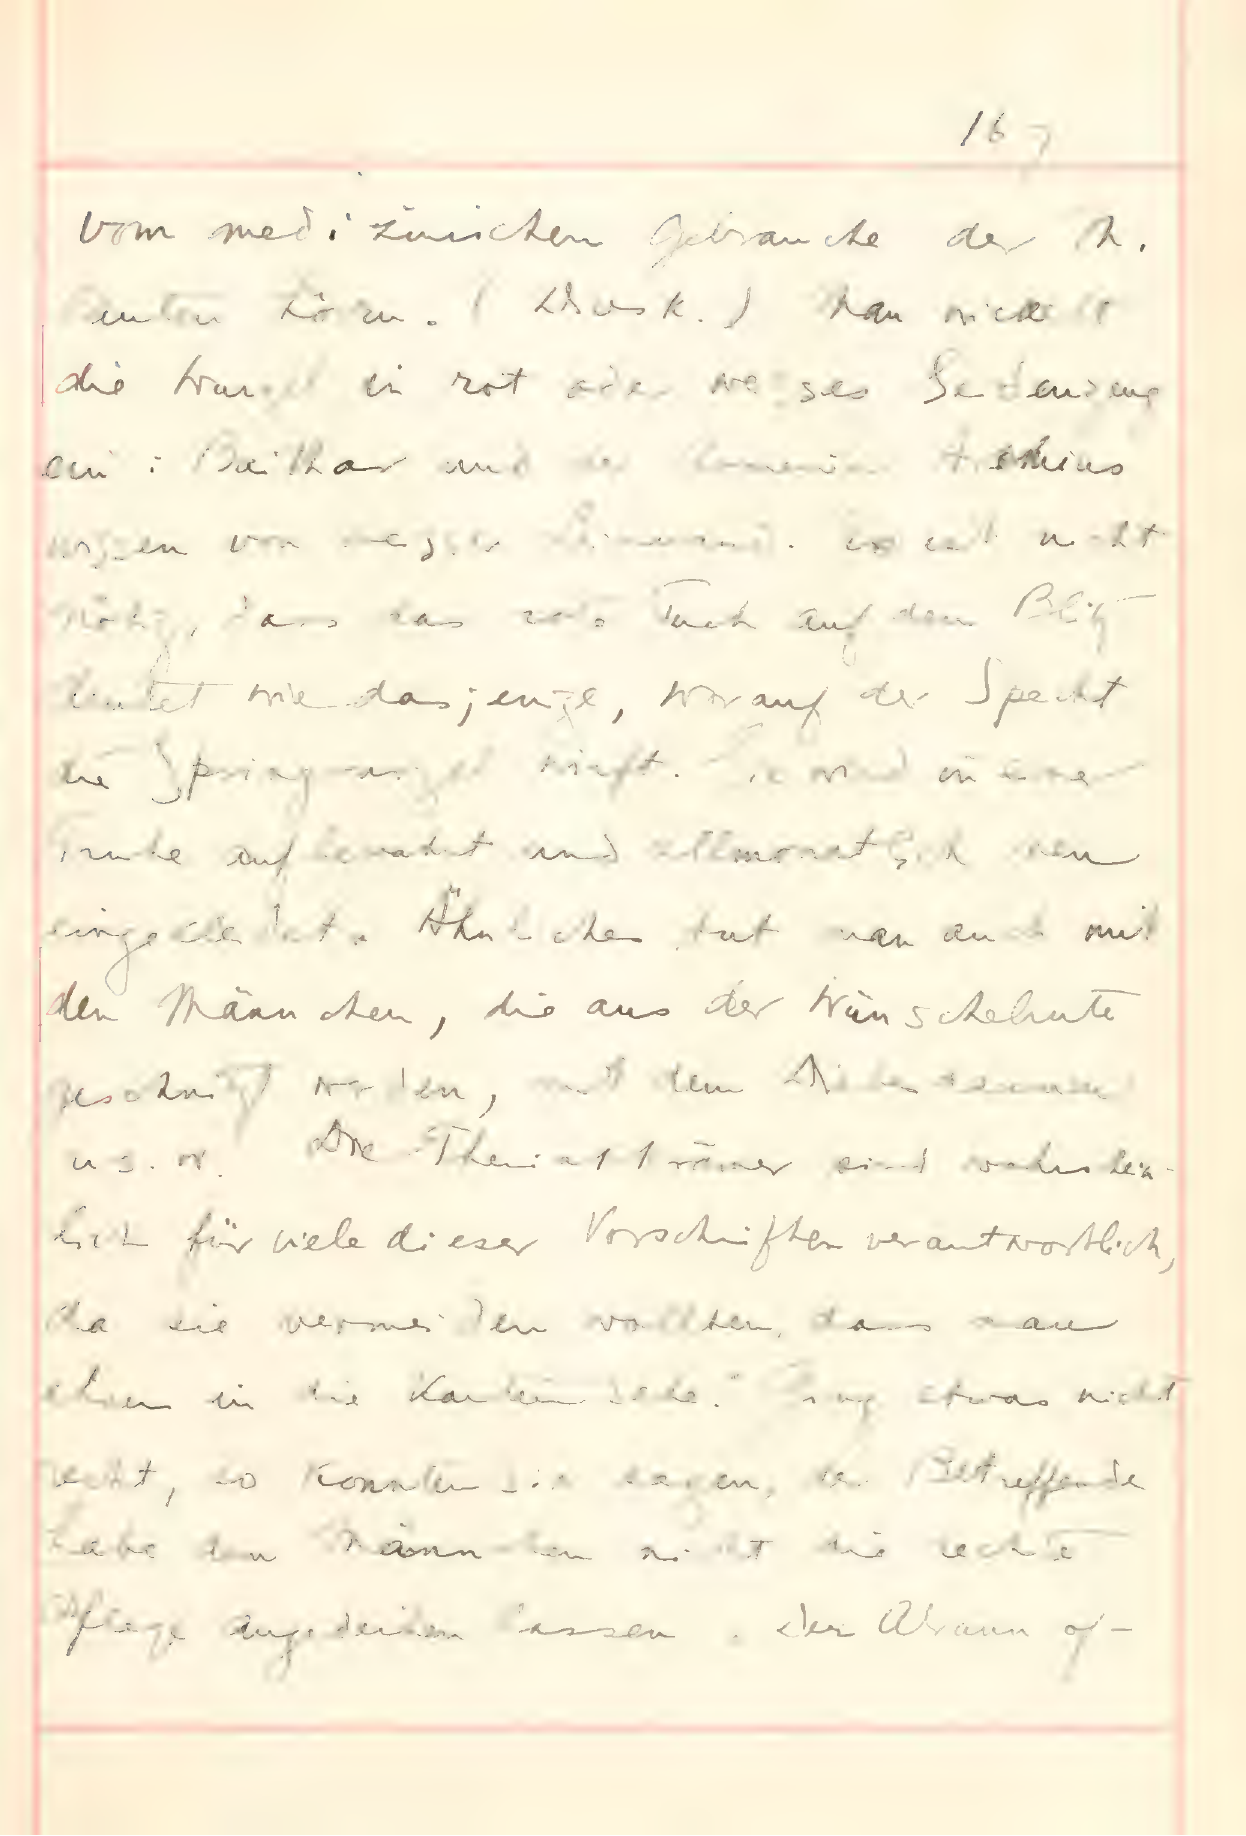 167
vom medizinischen Gebrauche der M.
unten hören. (Diosk.) Man wickelt
die Wurzel in rot oder weisses Seidenzeug
ein: Beithar und der
von weisser Leinwand. Es ist nicht
nötig, dass das rote Tuch auf den Blitz
deutet wie dasjenige, worauf der Specht
die Springwurzel wirft. Sie wird in einer
Truhe aufbewahrt und allmonatlich neu
eingekleidet. Ähnliches tut man auch mit
den Männchen, die aus der Wünschelrute
geschnitzt werden, mit dem Diebesdaumen
u.s.w. Die Theriakkrämer sind wahrschein-
lich für viele dieser Vorschriften verantwortlich,
da sie vermeiden wollten, dass man
ihnen in die Karten sehe. Ging etwas nicht
recht, so konnten sie sagen, der Betreffende
habe dem Männchen nicht die rechte
Pflege angedeihen lassen. Der Alraun of-